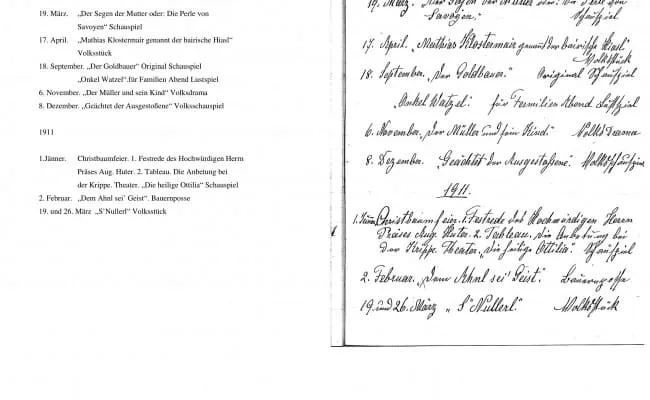 19. März. „Der Segen der Mutter oder: Die Perle von
Savoyen“ Schauspiel
17. April. „Mathias Klostermair genannt der bairische Hiasl“
Volksstück
18. September. „Der Goldbauer“ Original Schauspiel
„Onkel Watzel“.für Familien Abend Lustspiel
6. November. „Der Müller und sein Kind“ Volksdrama
8. Dezember. „Geächtet der Ausgestoßene“ Volksschauspiel
1911
1.Jänner. Christbaumfeier. 1. Festrede des Hochwürdigen Herrn
Präses Aug. Huter. 2. Tableau. Die Anbetung bei
der Krippe. Theater. „Die heilige Ottilia“ Schauspiel
2. Februar. „Dem Ahnl sei’ Geist“. Bauernposse
19. und 26. März „S’Nullerl“ Volksstück
19. März. „Der Segen der Mutter oder: Die Perle von
Savoyen.“ Schauspiel
17. April. „Mathias Klostermair genannt der bairische Hiasl“
Volksstück
18. September. „Der Goldbauer.“ Original Schauspiel
„Onkel Watzel.“ für Familien Abend Lustspiel
6. November. „Der Müller und sein Kind.“ Volksdrama
8. Dezember. „Geächtet der Ausgestossene“. Volksschauspiel
1911.
1. Jänn. Christbaumfeier. 1. Festrede des Hochwürdigen Herrn
Präses Aug. Huter. 2. Tableau. Die Anbetung bei
der Krippe. Theater. „Die heilige Ottilia“. Schauspiel
2. Februar. „Dem Ahnl sei' Geist.“ Bauernposse
19. und 26. März „S'Nullerl.“ Volksstück